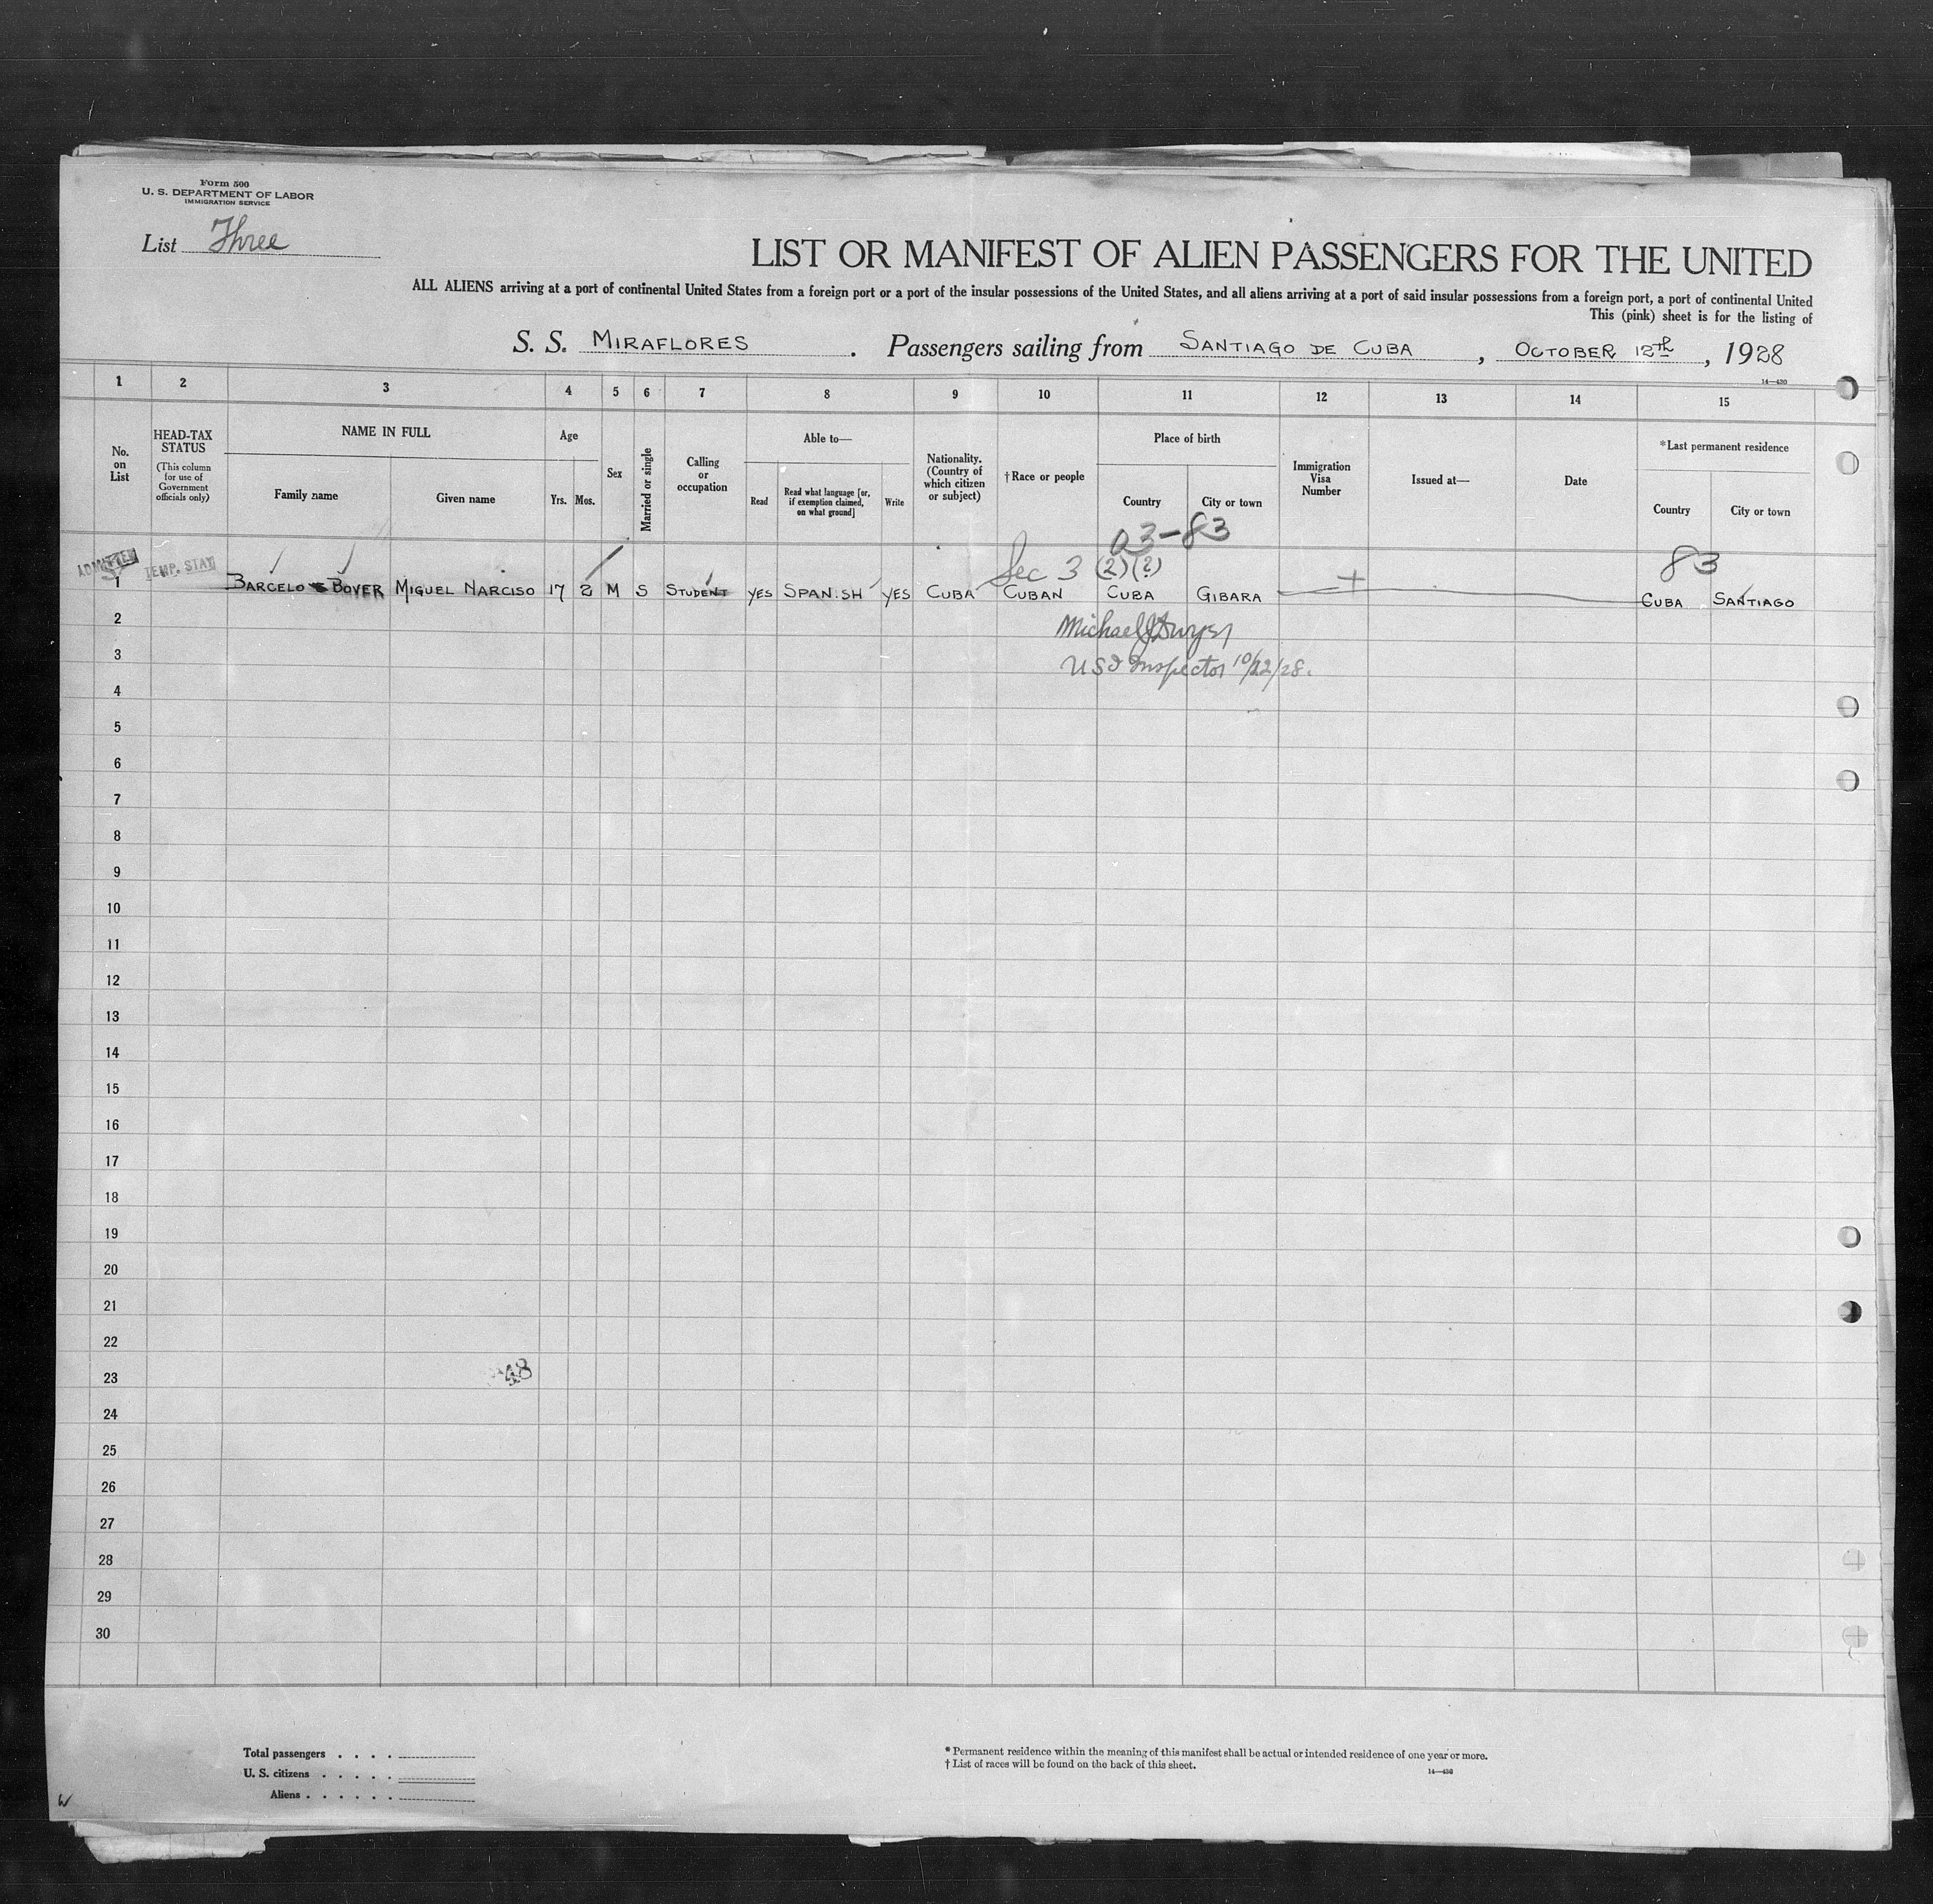 Form 500
U. S. DEPARTMENT OF LABOR
IMMIGRATION SERVICE
List Three
LIST OR MANIFEST OF ALIEN PASSENGERS FOR THE UNITED
ALL ALIENS arriving at a port of continental United States from a foreign port or a port of the insular possessions of the United States, and all aliens arriving at a port of said insular possessions from a foreign port, a port of continental United
This (pink) sheet is for the listing of
S. S. MIRAFLORES . Passengers sailing from SANTIAGO DE CUBA , OCTOBER 12TH , 1928
14—430
1 2 3 4 5 6 7 8 9 10 11 12 13 14 15
No. on List
HEAD-TAX STATUS
(This column for use of Government officials only)
NAME IN FULL
Family name
Given name
Age
Yrs. Mos.
Sex
Married or single
Calling or occupation
Able to—
Read
Read what language [or, if exemption claimed, on what ground]
Write
Nationality. (Country of which citizen or subject)
†Race or people
Place of birth
Country
City or town
Immigration Visa Number
Issued at—
Date
*Last permanent residence
Country
City or town
03-83
Sec 3 (2)(2)
83
ADMITTED
TEMP. STAY
1 BARCELO BOVER MIGUEL NARCISO 17 2 M S STUDENT YES SPANISH YES CUBA CUBAN CUBA GIBARA CUBA SANTIAGO
2
Michael J Dwyer
3
US I Inspector 10/22/28.
4
5
6
7
8
9
10
11
12
13
14
15
16
17
18
19
20
21
22
23
48
24
25
26
27
28
29
30
Total passengers . . . .
U. S. citizens . . . . .
Aliens . . . . . .
* Permanent residence within the meaning of this manifest shall be actual or intended residence of one year or more.
† List of races will be found on the back of this sheet.
14—430
W